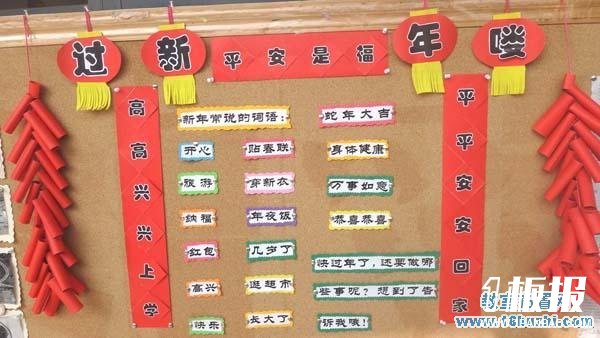 过新年喽
平安是福
高高兴兴上学
平平安安回家
新年常说的词语：
开心
旅游
纳福
红包
高兴
快乐
贴春联
穿新衣
年夜饭
几岁了
逛超市
长大了
蛇年大吉
身体健康
万事如意
恭喜恭喜
快过年了，还要做哪
些事呢？想到了告
诉我哦！
板报
www.16banzhi.com